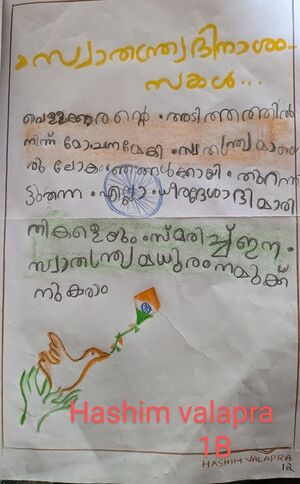 സ്വാതന്ത്ര്യദിനാശം-
സകൾ...
വെള്ളക്കാരന്റെ അടിത്തത്തിൽ
നിന്ന് മോചനമേകി സ്വതന്ത്ര്യമായ
ഒരു ലോകം ഞങ്ങൾക്കായി തുറന്ന്
ട്ടുതന്ന എല്ലാ ധീരദേശാഭിമാനി
നികളെയും സ്മരിച്ച് ഇന
സ്വാതന്ത്ര്യമധുരം നമുക്ക്
നുകരാം
Hashim valapra
1B
HASHIM VALAPRA
12